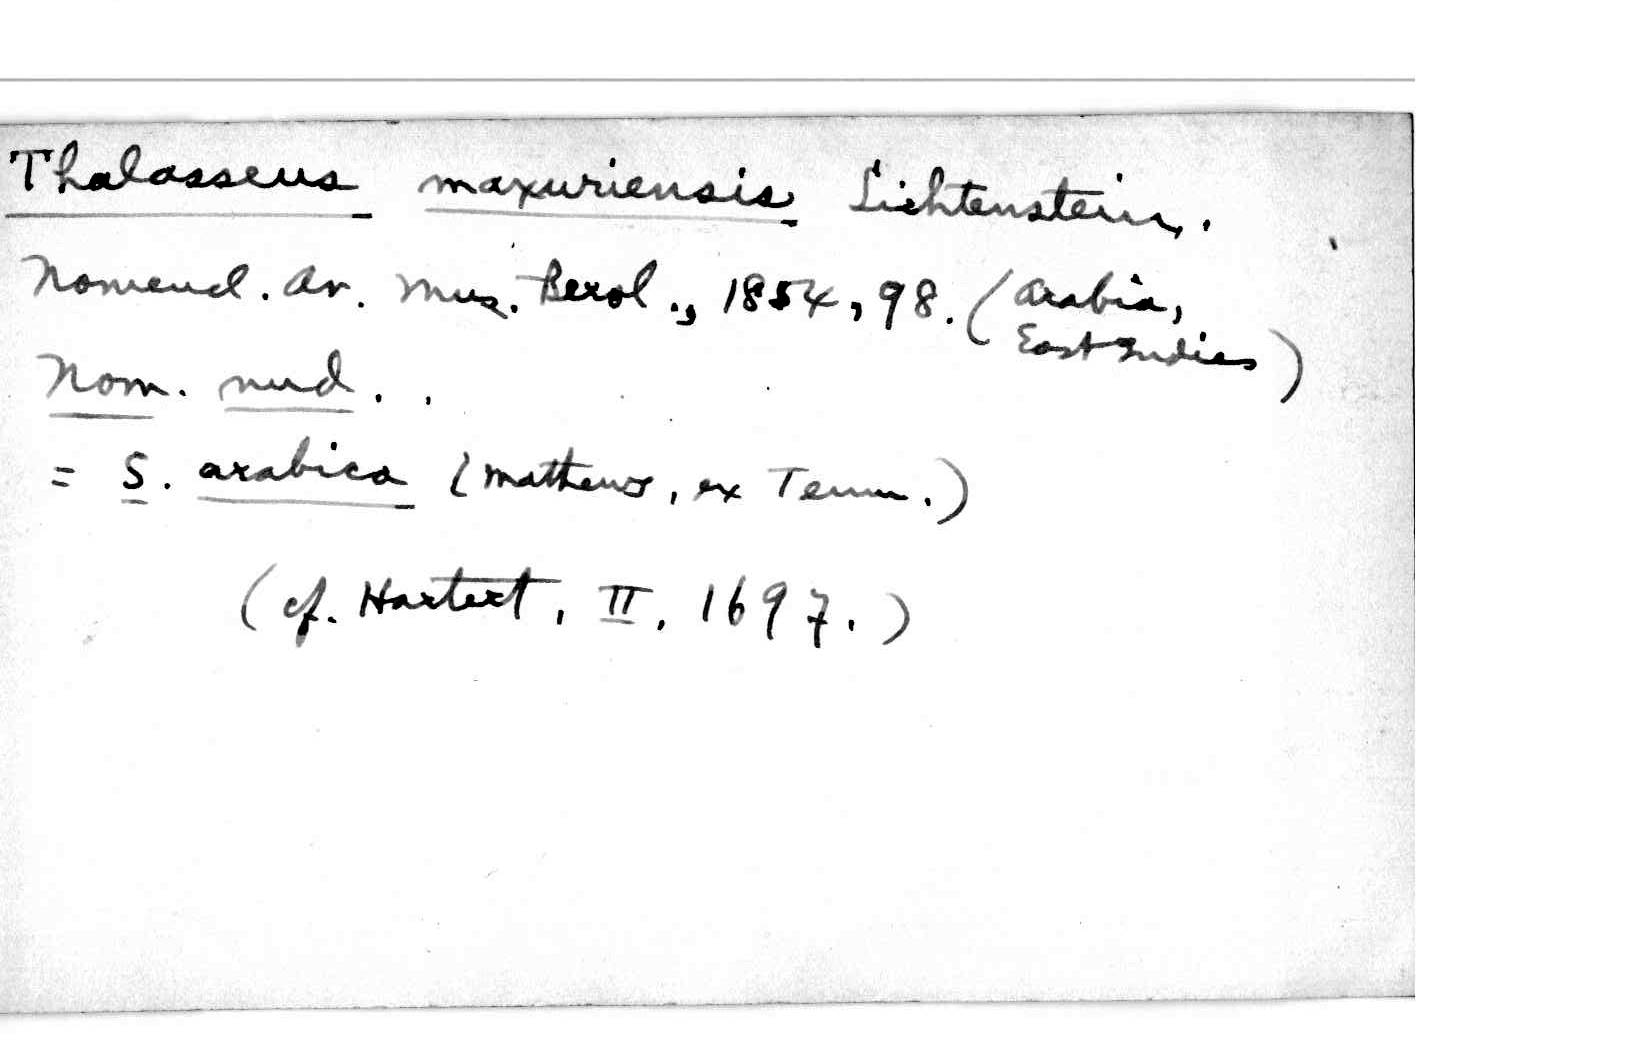 Thalasseus maxuriensis Lichtenstein,.
Nomencl. Av. Mus. Berol., 1854, 98. (Arabia,
East Indies)
Nom. nud. .
= S. arabica (Mathews, ex Temm.)
(cf. Hartert, II, 1697.)